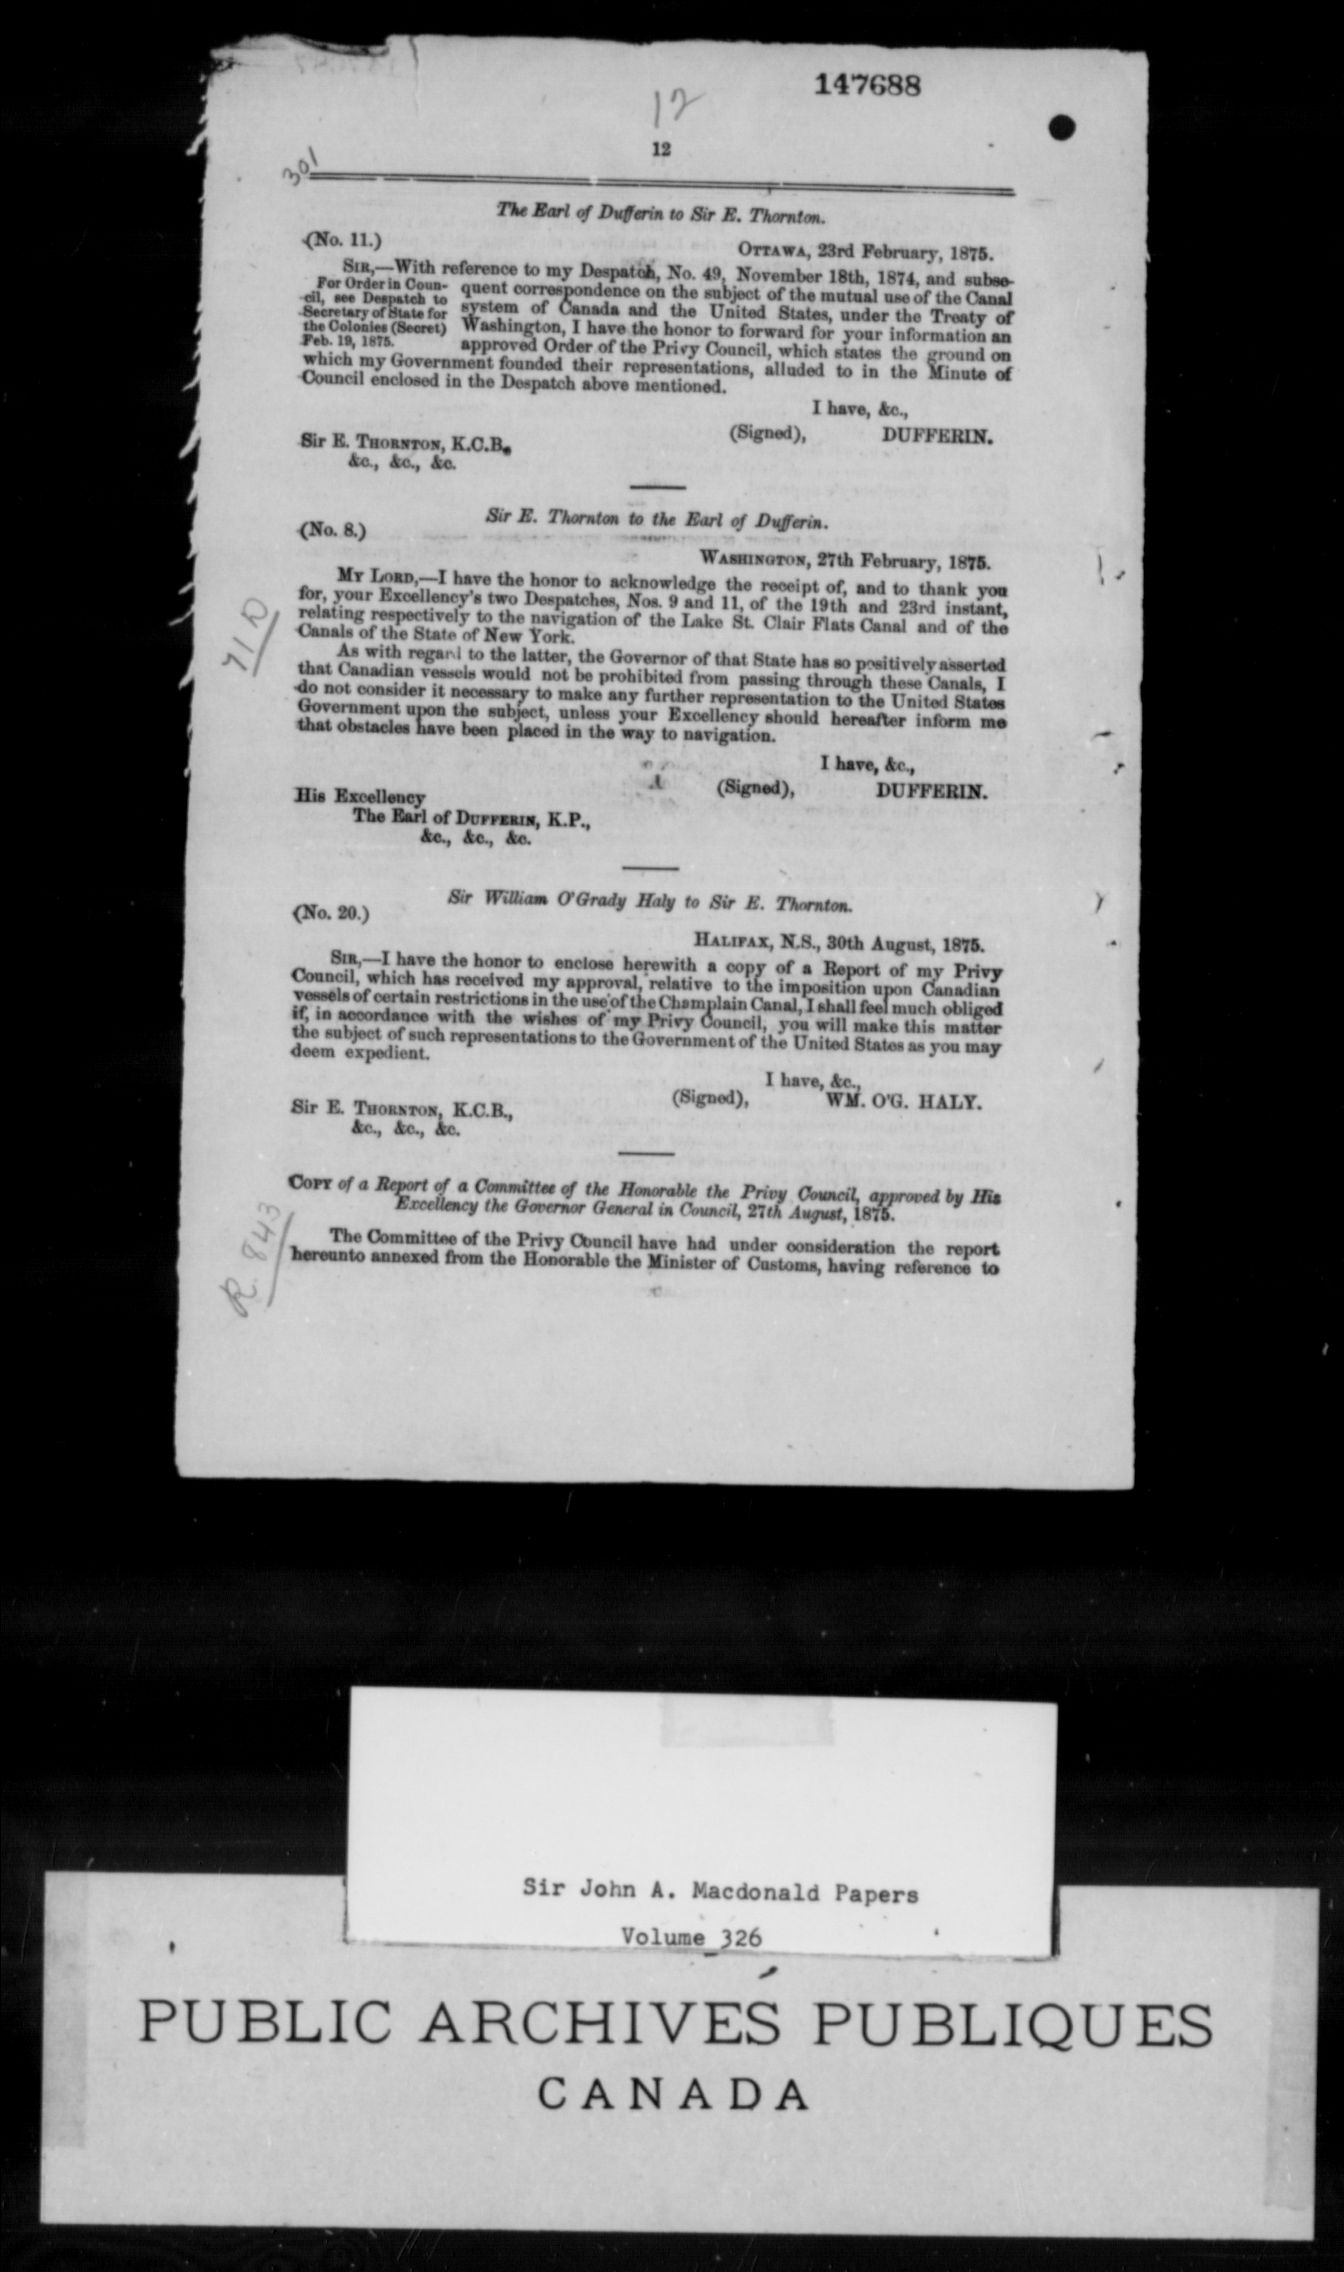 147688
12
12
301
The Earl of Dufferin to Sir E. Thornton.
(No. 11.)
OTTAWA, 23rd February, 1875.
SIR,—With reference to my Despatch, No. 49, November 18th, 1874, and subse-
For Order in Coun-
cil, see Despatch to
Secretary of State for
the Colonies (Secret)
Feb. 19, 1875.
quent correspondence on the subject of the mutual use of the Canal
system of Canada and the United States, under the Treaty of
Washington, I have the honor to forward for your information an
approved Order of the Privy Council, which states the ground on
which my Government founded their representations, alluded to in the Minute of
Council enclosed in the Despatch above mentioned.
I have, &c.,
(Signed), DUFFERIN.
Sir E. THORNTON, K.C.B.,
&c., &c., &c.
Sir E. Thornton to the Earl of Dufferin.
(No. 8.)
WASHINGTON, 27th February, 1875.
MY LORD,—I have the honor to acknowledge the receipt of, and to thank you
for, your Excellency's two Despatches, Nos. 9 and 11, of the 19th and 23rd instant,
relating respectively to the navigation of the Lake St. Clair Flats Canal and of the
Canals of the State of New York.
71 D
As with regard to the latter, the Governor of that State has so positively asserted
that Canadian vessels would not be prohibited from passing through these Canals, I
do not consider it necessary to make any further representation to the United States
Government upon the subject, unless your Excellency should hereafter inform me
that obstacles have been placed in the way to navigation.
I have, &c.,
(Signed), DUFFERIN.
His Excellency
The Earl of DUFFERIN, K.P.,
&c., &c., &c.
Sir William O'Grady Haly to Sir E. Thornton.
(No. 20.)
HALIFAX, N.S., 30th August, 1875.
SIR,—I have the honor to enclose herewith a copy of a Report of my Privy
Council, which has received my approval, relative to the imposition upon Canadian
vessels of certain restrictions in the use of the Champlain Canal, I shall feel much obliged
if, in accordance with the wishes of my Privy Council, you will make this matter
the subject of such representations to the Government of the United States as you may
deem expedient.
I have, &c.,
(Signed), WM. O'G. HALY.
Sir E. THORNTON, K.C.B.,
&c., &c., &c.
COPY of a Report of a Committee of the Honorable the Privy Council, approved by His
Excellency the Governor General in Council, 27th August, 1875.
R. 843
The Committee of the Privy Council have had under consideration the report
hereunto annexed from the Honorable the Minister of Customs, having reference to
Sir John A. Macdonald Papers
Volume 326
PUBLIC ARCHIVES PUBLIQUES
CANADA